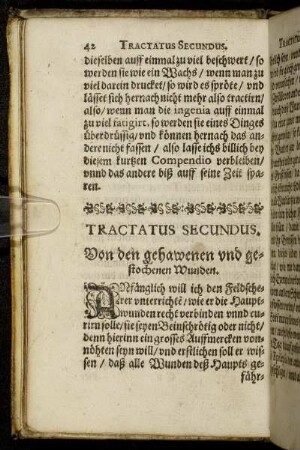 42 TRACTATUS SECUNDUS.
dieselben auff einmal zu viel beschwert / so
werden sie wie ein Wachs / wenn man zu
viel darein drucket / so wird es spröte / und
lässet sich hernach nicht mehr also tractirn /
also / wenn man die ingenia auff einmal
zu viel fatigirt. so werden sie eines Dinges
überdrüssig / und können hernach das an-
dere nicht fassen / also lasse ichs billich bey
diesem kurtzen Compendio verbleiben /
unnd das andere biß auff seine Zeit spa-
ren.
TRACTATUS SECUNDUS.
Von den gehawenen vnd ge-
stochenen Wunden.
ANfänglich will ich den Feldsche-
rer vnterrichtē / wie er die Haupt-
wunden recht verbinden vnnd cu-
rirn solle / sie seyen Beinschrötig oder nicht /
denn hierinn ein grosses Auffmercken von-
nöhten seyn will / und erstlichen soll er wis-
sen / daß alle Wunden deß Haupts ge-
fähr-